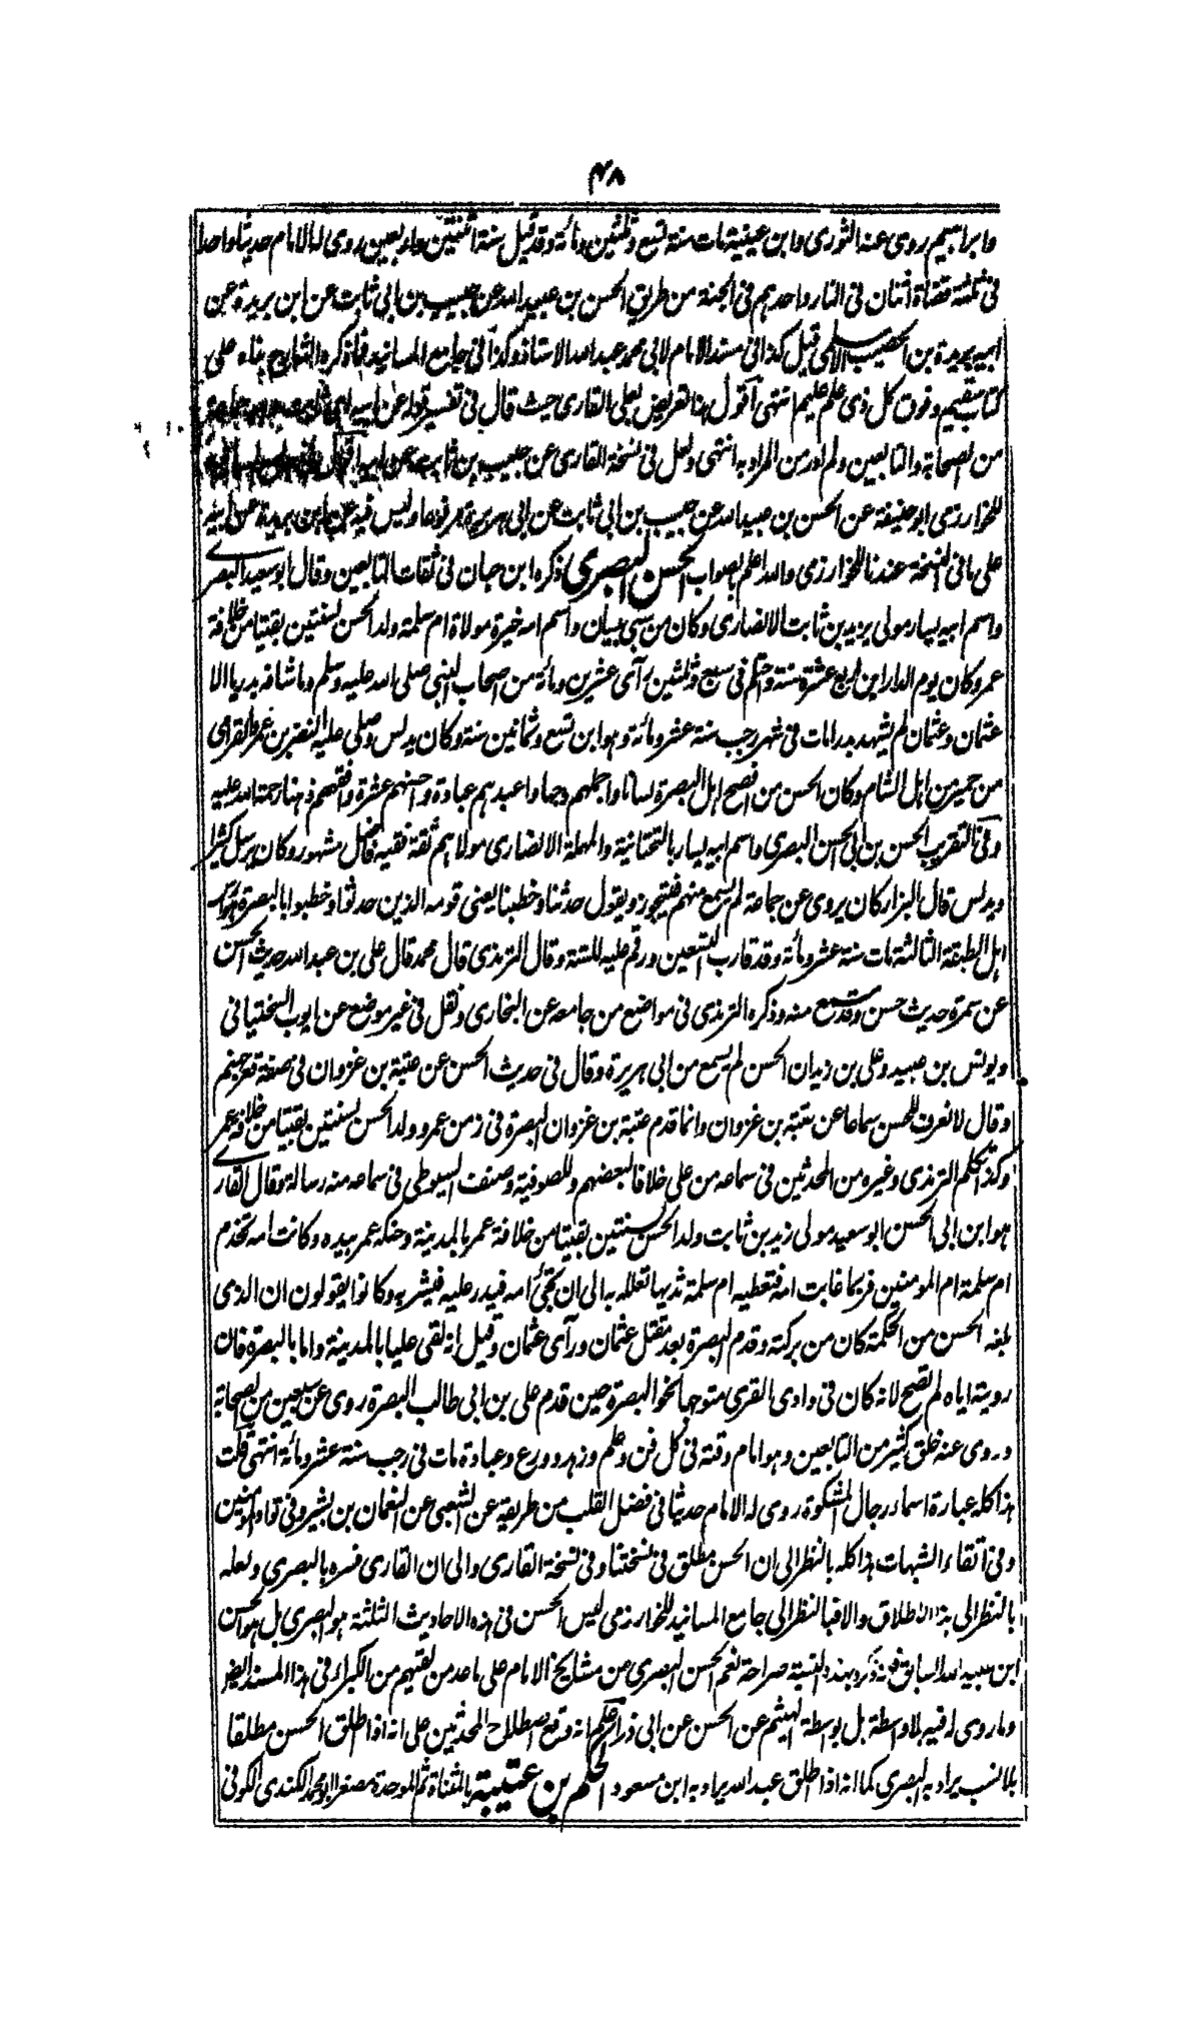 ٤٨
وابراهيم روى عنه الثورى وابن عيينة مات سنة تسع وثلثين ومائة وقد قيل سنة اثنتين واربعين روى له الامام حديثا واحدا
فى ثلثة قضاة اثنان فى النار واحدهم فى الجنة من طريق الحسن بن عبيد الله عن حبيب بن ابى ثابت عن ابن بريدة عن
ابيه بريدة بن الحصيب الاسلمى قيل كذا فى مسند الامام لابى محمد عبد الله الاستاذ وكذا فى جامع المسانيد فما ذكره الشارح بناء على
كتاب سقيم وفوق كل ذى علم عليم انتهى اقول هذا تعريض لعلى القارى حيث قال فى تفسير قوله عن ابيه اى ثابت
من الصحابة والتابعين ولم ادر من المراد به انتهى ولعل فى نسخة القارى عن حبيب بن ثابت عن ابيه
للخوارزمى ابو حنيفة عن الحسن بن عبيد الله عن حبيب بن ابى ثابت عن ابى هريرة مرفوعا وليس فيه عن ابن بريدة عن ابيه
على ما فى النسخة عندنا للخوارزمى والله اعلم بالصواب الحسن البصرى ذكره ابن حبان فى ثقات التابعين وقال ابو سعيد البصرى
واسم ابيه يسار مولى يزيد بن ثابت الانصارى وكان من سبى ميسان واسم امه خيرة مولاة ام سلمة ولد الحسن لسنتين بقيتا من خلافة
عمر وكان يوم الدار ابن اربع عشرة سنة واحتلم فى سبع وثلثين رأى عشرين ومائة من اصحاب النبى صلى الله عليه وسلم وما شافه بدريا الا
عثمان وعثمان لم يشهد بدرا مات فى شهر رجب سنة عشر ومائة وهو ابن تسع وثمانين سنة وكان يدلس وصلى عليه النضر بن عمرو القرامى
من حمير من اهل الشام وكان الحسن من افصح اهل البصرة لسانا واجملهم وجها واعبدهم عبادة واحسنهم عشرة وافقههم ذهنا رحمة الله عليه
وفى التقريب الحسن بن ابى الحسن البصرى واسم ابيه يسار بالتحتانية والمهملة الانصارى مولاهم ثقة فقيه فاضل مشهور وكان يرسل كثيرا
ويدلس قال البزار كان يروى عن جماعة لم يسمع منهم فيتجوز ويقول حدثنا وخطبنا يعنى قومه الذين حدثوا وخطبوا بالبصرة هو راس
اهل الطبقة الثالثة مات سنة عشر ومائة وقد قارب التسعين ورقم عليه للستة وقال الترمذى قال محمد قال على بن عبد الله حديث الحسن
عن سمرة حديث حسن وقد سمع منه وذكره الترمذى فى مواضع من جامعه عن البخارى ونقل فى غير موضع عن ايوب السختيانى
ويونس بن عبيد وعلى بن زيد ان الحسن لم يسمع من ابى هريرة وقال فى حديث الحسن عن عتبة بن غزوان فى صفة قعر جهنم
وقال لا نعرف للحسن سماعا عن عتبة بن غزوان وانما قدم عتبة بن غزوان البصرة فى زمن عمر وولد الحسن لسنتين بقيتا من خلافة عمر
وكذا تكلم الترمذى وغيره من المحدثين فى سماعه من على خلافا لبعضهم وللصوفية وصنف السيوطى فى سماعه منه رسالة وقال القارى
هو ابن ابى الحسن ابو سعيد مولى زيد بن ثابت ولد الحسن لسنتين بقيتا من خلافة عمر بالمدينة وحنكه عمر بيده وكانت امه تخدم
ام سلمة ام المومنين فربما غابت امه فتعطيه ام سلمة ثديها تعلله به الى ان تجئ امه فيدر عليه فيشربه وكانوا يقولون ان الذى
بلغه الحسن من الحكمة كان من بركته وقدم البصرة بعد مقتل عثمان ورأى عثمان وقيل انه لقى عليا بالمدينة واما بالبصرة فان
رويته اياه لم تصح لانه كان فى وادى القرى متوجها نحو البصرة حين قدم على بن ابى طالب البصرة روى عن سبعين من الصحابة
وروى عنه خلق كثير من التابعين وهو امام وقته فى كل فن وعلم وزهد وورع وعبادة مات فى رجب سنة عشر ومائة انتهى قلت
هذا كله عبارة اسماء رجال المشكوة روى له الامام حديثا فى فضل القلب من طريقه عن الشعبى عن النعمان بن بشير وفى تواد المومنين
وفى اتقاء الشبهات هذا كله بالنظر الى ان الحسن مطلق فى نسختنا وفى نسخة القارى والى ان القارى فسره بالبصرى ولعله
بالنظر الى هذا الاطلاق والا فبالنظر الى جامع المسانيد للخوارزمى ليس الحسن فى هذه الاحاديث الثلثة هو البصرى بل هو الحسن
ابن عبيد الله السابق فانه ذكره بهذه النسبة صراحة نعم الحسن البصرى من مشايخ الامام على ما عد من لقيهم من الكبار فى هذا المسند ايضا
وما روى له فيه بلا واسطة بل بواسطة الهيثم عن الحسن عن ابى ذر اعلم انه وقع اصطلاح المحدثين على انه اذا اطلق الحسن مطلقا
بلا نسب يراد به البصرى كما انه اذا اطلق عبد الله يراد به ابن مسعود الحكم بن عتيبة بالمثناة ثم الموحدة مصغرا ابو محمد الكندى الكوفى